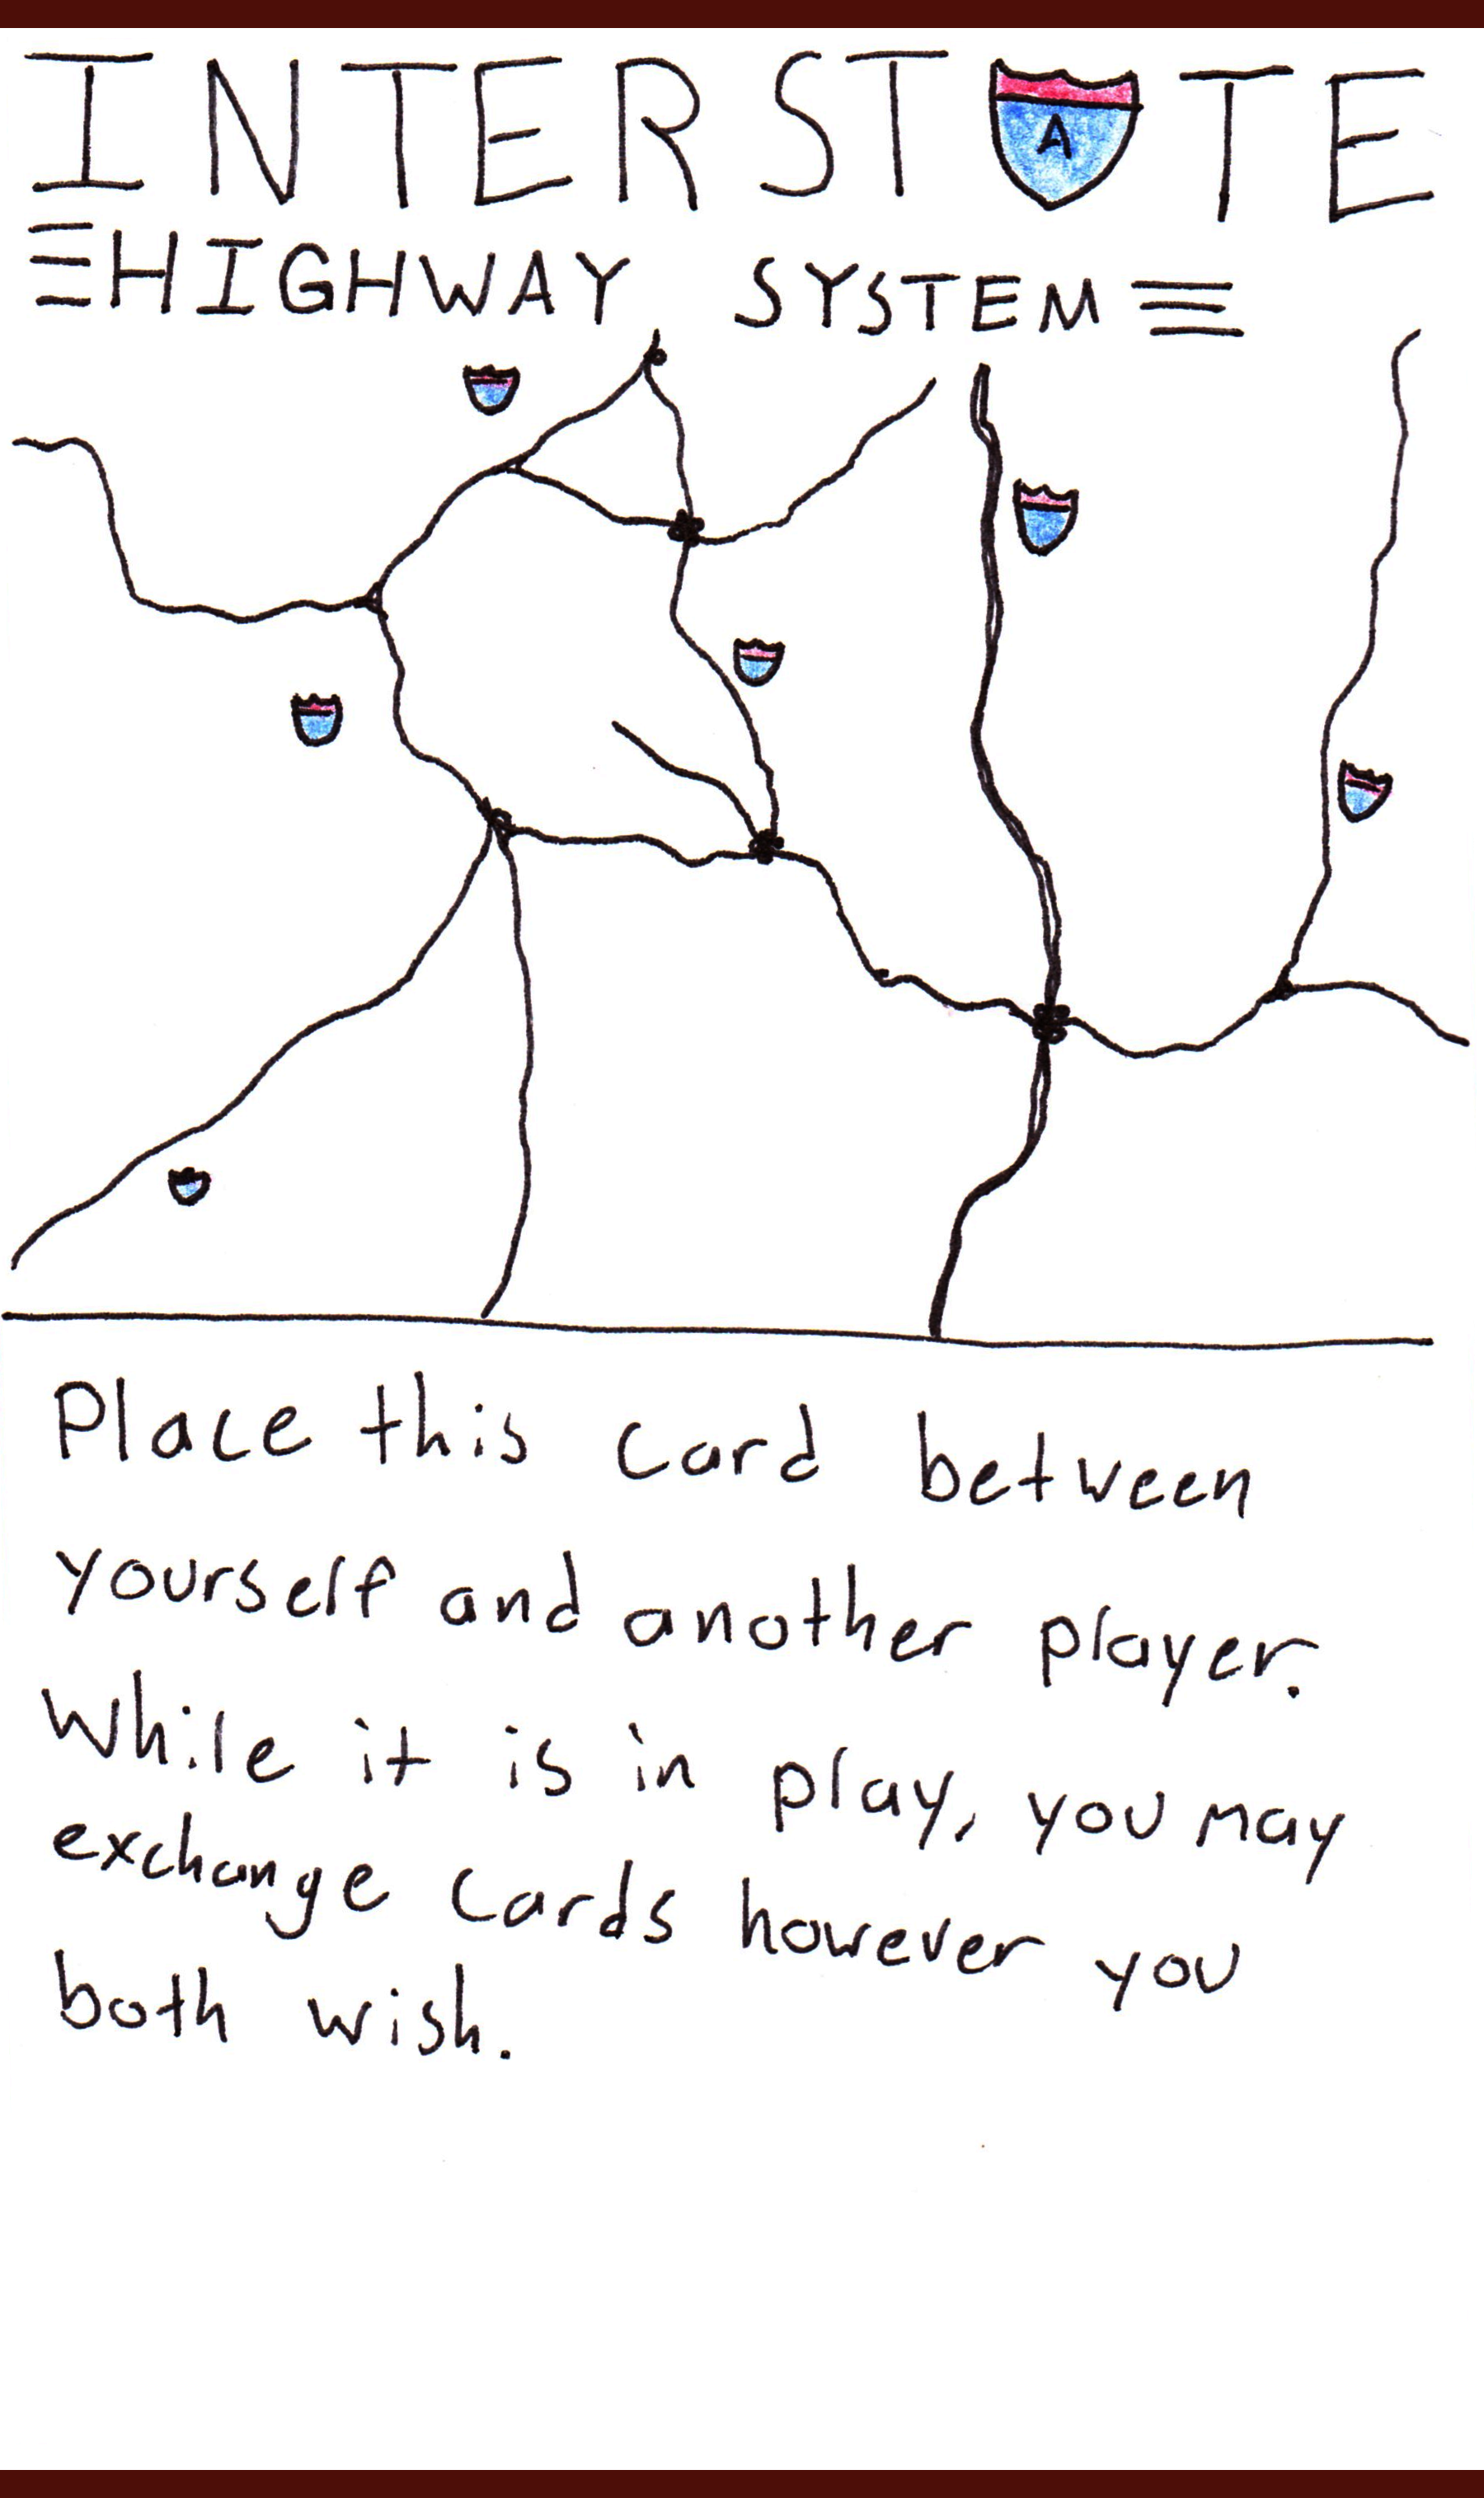 INTERSTATE
HIGHWAY SYSTEM
Place this card between
yourself and another player.
While it is in play, you may
exchange cards however you
both wish.